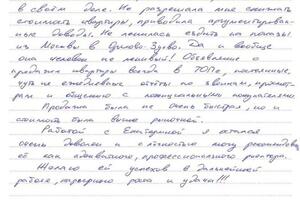 в своём деле. Не разрешала мне снижать
стоимость квартиры, приводила аргументирован-
ные доводы. Не ленилась ездить на показы
из Москвы в Орехово-Зуево. Да и вообще
она человек не ленивый! Объявление о
продаже квартиры всегда в ТОПе, постоянные,
чуть не ежедневные отчёты по звонкам, просмот-
рам и общению с потенциальными покупателями
Продажа была не очень быстрая, но и
стоимость была выше рыночной.
Работой с Екатериной я остался
очень доволен и с лёгкостью могу рекомендовать
её как адекватного, профессионального риэлтора.
Желаю ей успехов в дальнейшей
работе, карьерного роста и удачи!!!